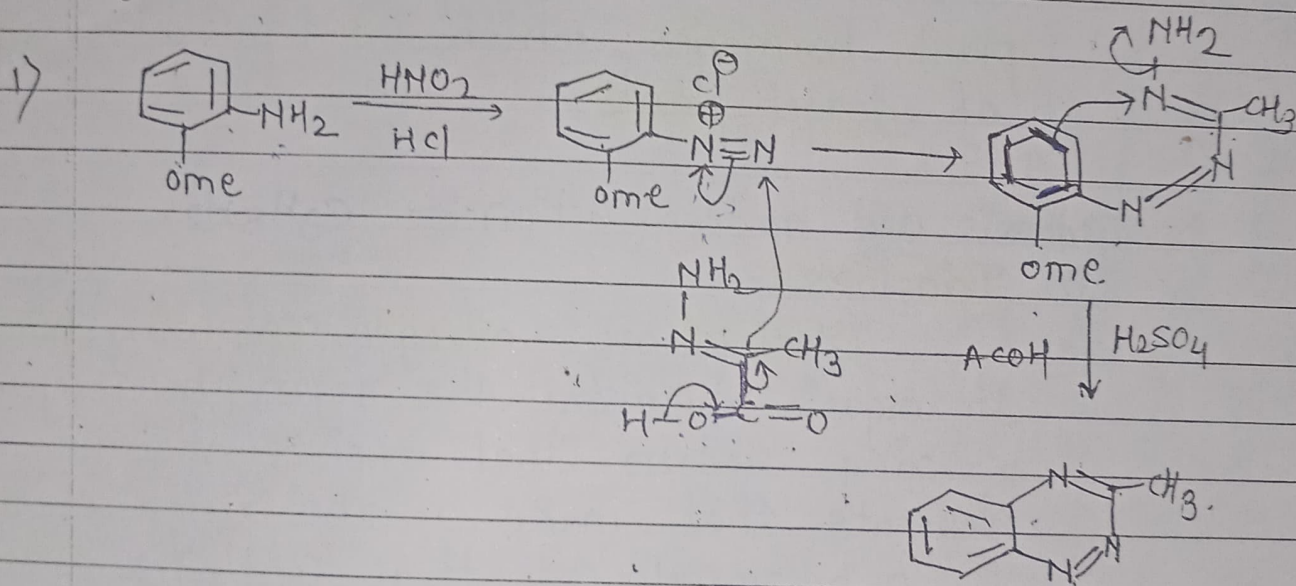 1)
NH2
HNO2
HCl
ome
Cl ⊖
⊕
N≡N
ome
NH2
N
CH3
N
N
ome
NH2
N
CH3
H-O
C=O
ACOH
H2SO4
N
CH3.
N
N